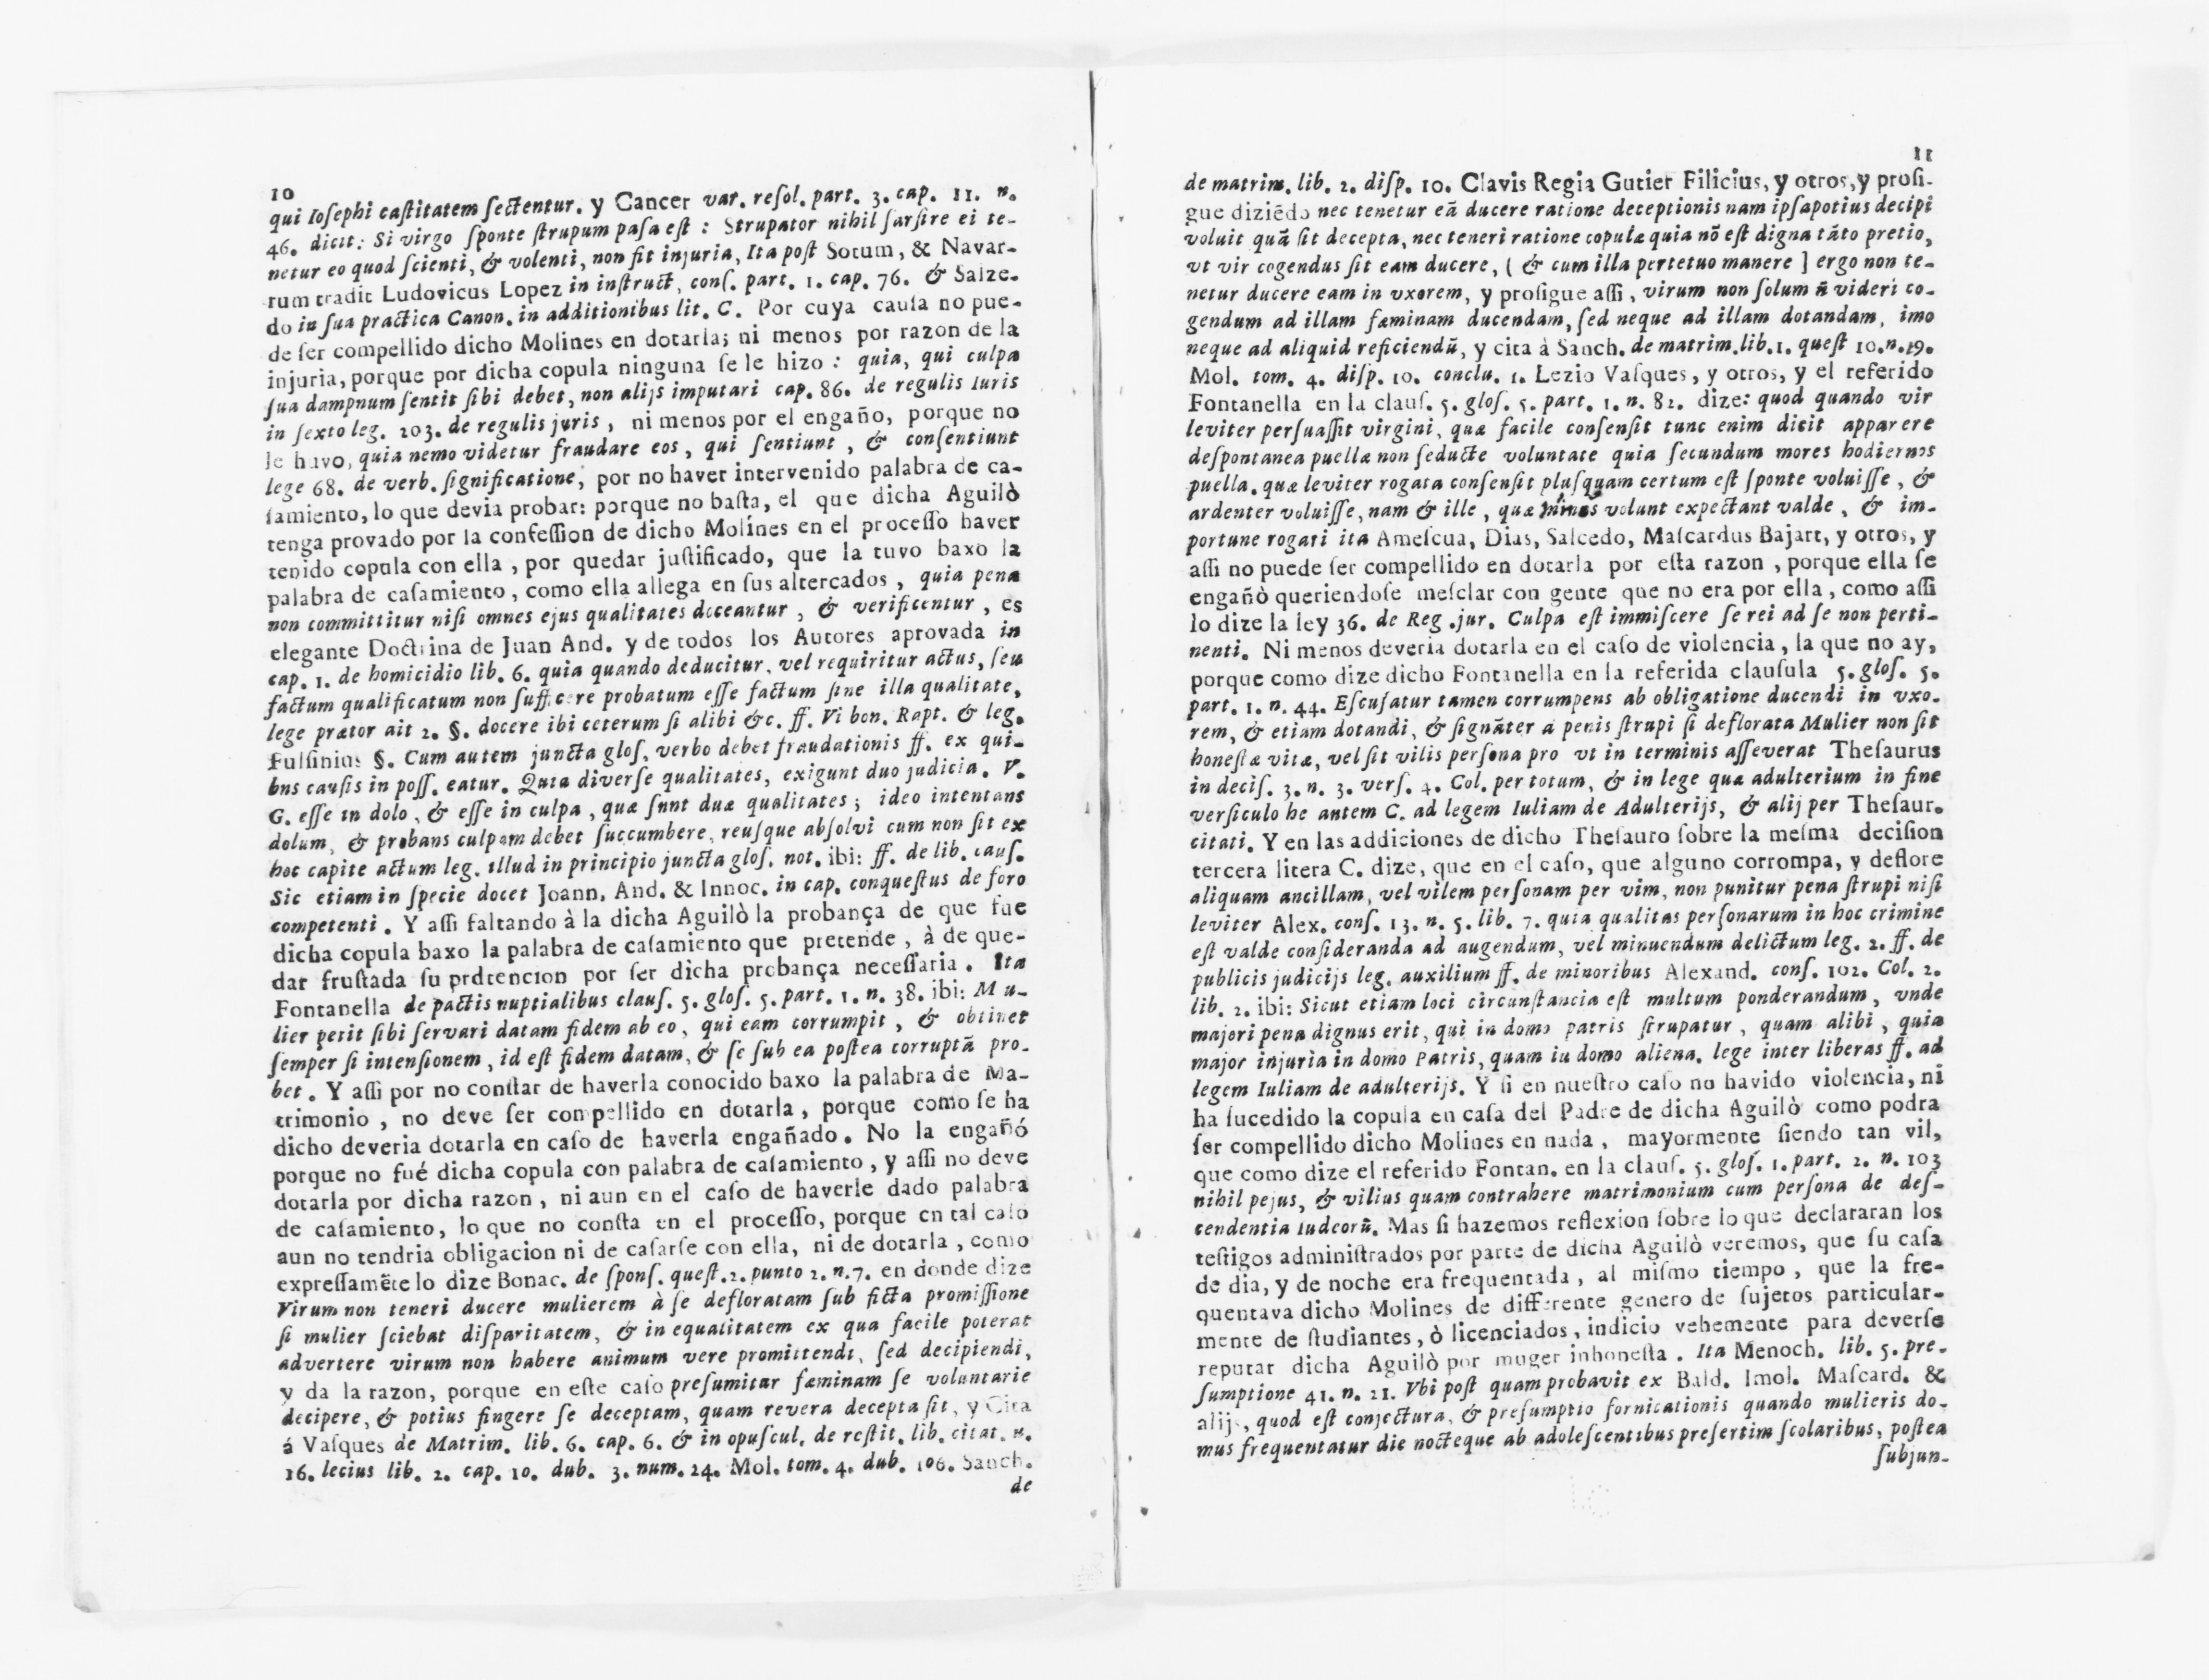 10
qui Ioſephi caſtitatem ſectentur. y Cancer var. reſol. part. 3. cap. 11. n.
46. dicit: Si virgo ſponte ſtrupum paſa eſt : Strupator nihil ſarſire ei te-
netur eo quod ſcienti, & volenti, non fit injuria, Ita poſt Sotum, & Navar-
rum tradit Ludovicus Lopez in inſtruct, conſ. part. 1. cap. 76. & Salze-
do in ſua practica Canon. in additionibus lit. C. Por cuya cauſa no pue-
de ſer compellido dicho Molines en dotarla; ni menos por razon de la
injuria, porque por dicha copula ninguna ſe le hizo : quia, qui culpa
ſua dampnum ſentit ſibi debet, non alijs imputari cap. 86. de regulis Iuris
in ſexto leg. 203. de regulis juris, ni menos por el engaño, porque no
le huvo, quia nemo videtur fraudare eos, qui ſentiunt, & conſentiunt
lege 68. de verb. ſignificatione, por no haver intervenido palabra de ca-
ſamiento, lo que devia probar: porque no baſta, el que dicha Aguilò
tenga provado por la confeſſion de dicho Molines en el proceſſo haver
tenido copula con ella, por quedar juſtificado, que la tuvo baxo la
palabra de caſamiento, como ella allega en ſus altercados, quia pena
non committitur niſi omnes ejus qualitates doceantur, & verificentur, es
elegante Doctrina de Juan And. y de todos los Autores aprovada in
cap. 1. de homicidio lib. 6. quia quando deducitur, vel requiritur actus, ſeu
factum qualificatum non ſufficere probatum eſſe factum ſine illa qualitate,
lege prætor ait 2. §. docere ibi ceterum ſi alibi &c. ff. Vi bon. Rapt. & leg.
Fulſinius §. Cum autem juncta gloſ, verbo debet fraudationis ff. ex qui-
bns cauſis in poſſ. eatur. Quia diverſe qualitates, exigunt duo judicia. V.
G. eſſe in dolo, & eſſe in culpa, quæ ſnnt duæ qualitates; ideo intentans
dolum, & probans culpam debet ſuccumbere, reuſque abſolvi cum non ſit ex
hoc capite actum leg. illud in principio juncta gloſ. not. ibi: ff. de lib. cauſ.
Sic etiam in ſpecie docet Joann. And. & Innoc. in cap. conqueſtus de foro
competenti. Y aſſi faltando à la dicha Aguilò la probança de que fue
dicha copula baxo la palabra de caſamiento que pretende, à de que-
dar fruſtada ſu prdtencion por ſer dicha probança neceſſaria. Ita
Fontanella de pactis nuptialibus clauſ. 5. gloſ. 5. part. 1. n. 38. ibi: Mu-
lier petit ſibi ſervari datam fidem ab eo, qui eam corrumpit, & obtinet
ſemper ſi intenſionem, id eſt fidem datam, & ſe ſub ea poſtea corruptã pro-
bet. Y aſſi por no conſtar de haverla conocido baxo la palabra de Ma-
trimonio, no deve ſer compellido en dotarla, porque como ſe ha
dicho deveria dotarla en caſo de haverla engañado. No la engañó
porque no fué dicha copula con palabra de caſamiento, y aſſi no deve
dotarla por dicha razon, ni aun en el caſo de haverle dado palabra
de caſamiento, lo que no conſta en el proceſſo, porque en tal caſo
aun no tendria obligacion ni de caſarſe con ella, ni de dotarla, como
expreſſamẽte lo dize Bonac. de ſponſ. queſt. 2. punto 2. n. 7. en donde dize
Virum non teneri ducere mulierem à ſe defloratam ſub ficta promiſſione
ſi mulier ſciebat diſparitatem, & inequalitatem ex qua facile poterat
advertere virum non habere animum vere promittendi, ſed decipiendi,
y da la razon, porque en eſte caſo preſumitar fæminam ſe voluntarie
decipere, & potius fingere ſe deceptam, quam revera decepta ſit, y Cita
á Vaſques de Matrim. lib. 6. cap. 6. & in opuſcul. de reſtit. lib. citat. n.
16. lecius lib. 2. cap. 10. dub. 3. num. 24. Mol. tom. 4. dub. 106. Sanch.
de
11
de matrim. lib. 2. diſp. 10. Clavis Regia Gutier Filicius, y otros, y proſi-
gue diziẽdo nec tenetur eã ducere ratione deceptionis nam ipſapotius decipi
voluit quã ſit decepta, nec teneri ratione copulæ quia nõ eſt digna tãto pretio,
vt vir cogendus ſit eam ducere, ( & cum illa pertetuo manere ] ergo non te-
netur ducere eam in vxorem, y proſigue aſſi, virum non ſolum ñ videri co-
gendum ad illam fæminam ducendam, ſed neque ad illam dotandam, imo
neque ad aliquid reficiendũ, y cita à Sanch. de matrim. lib. 1. queſt 10. n. 19.
Mol. tom. 4. diſp. 10. conclu. 1. Lezio Vaſques, y otros, y el referido
Fontanella en la clauſ. 5. gloſ. 5. part. 1. n. 82. dize: quod quando vir
leviter perſuaſſit virgini, quæ facile conſenſit tunc enim dicit apparere
deſpontanea puellæ non ſeducte voluntate quia ſecundum mores hodiernos
puella, quæ leviter rogata conſenſit pluſquam certum eſt ſponte voluiſſe, &
ardenter voluiſſe, nam & ille, quæ minus volunt expectant valde, & im-
portune rogari ita Ameſcua, Dias, Salcedo, Maſcardus Bajart, y otros, y
aſſi no puede ſer compellido en dotarla por eſta razon, porque ella ſe
engañò queriendoſe meſclar con gente que no era por ella, como aſſi
lo dize la ley 36. de Reg. jur. Culpa eſt immiſcere ſe rei ad ſe non perti-
nenti. Ni menos deveria dotarla en el caſo de violencia, la que no ay,
porque como dize dicho Fontanella en la referida clauſula 5. gloſ. 5.
part. 1. n. 44. Eſcuſatur tamen corrumpens ab obligatione ducendi in vxo-
rem, & etiam dotandi, & ſignãter a penis ſtrupi ſi deflorata Mulier non ſit
honeſtæ vitæ, vel ſit vilis perſona pro vt in terminis aſſeverat Theſaurus
in deciſ. 3. n. 3. verſ. 4. Col. per totum, & in lege quæ adulterium in fine
verſiculo he antem C. ad legem Iuliam de Adulterijs, & alij per Theſaur.
citati. Y en las addiciones de dicho Theſauro ſobre la meſma deciſion
tercera litera C. dize, que en el caſo, que alguno corrompa, y deflore
aliquam ancillam, vel vilem perſonam per vim, non punitur pena ſtrupi niſi
leviter Alex. conſ. 13. n. 5. lib. 7. quia qualitas perſonarum in hoc crimine
eſt valde conſideranda ad augendum, vel minuendum delictum leg. 2. ff. de
publicis judicijs leg. auxilium ff. de minoribus Alexand. conſ. 102. Col. 2.
lib. 2. ibi: Sicut etiam loci circunſtancia eſt multum ponderandum, vnde
majori pena dignus erit, qui in domo patris ſtrupatur, quam alibi, quia
major injuria in domo Patris, quam iu domo aliena. lege inter liberas ff. ad
legem Iuliam de adulterijs. Y ſi en nueſtro caſo no havido violencia, ni
ha ſucedido la copula en caſa del Padre de dicha Aguilò como podra
ſer compellido dicho Molines en nada, mayormente ſiendo tan vil,
que como dize el referido Fontan. en la clauſ. 5. gloſ. 1. part. 2. n. 103
nihil pejus, & vilius quam contrahere matrimonium cum perſona de deſ-
cendentia Iudeorũ. Mas ſi hazemos reflexion ſobre lo que declararan los
teſtigos adminiſtrados por parte de dicha Aguilò veremos, que ſu caſa
de dia, y de noche era frequentada, al miſmo tiempo, que la fre-
quentava dicho Molines de differente genero de ſujetos particular-
mente de ſtudiantes, ò licenciados, indicio vehemente para deverſe
reputar dicha Aguilò por muger inhoneſta. Ita Menoch. lib. 5. pre-
ſumptione 41. n. 21. Vbi poſt quam probavit ex Bald. Imol. Maſcard. &
alijs, quod eſt conjectura, & preſumptio fornicationis quando mulieris do-
mus frequentatur die nocteque ab adoleſcentibus preſertim ſcolaribus, poſtea
ſubjun-